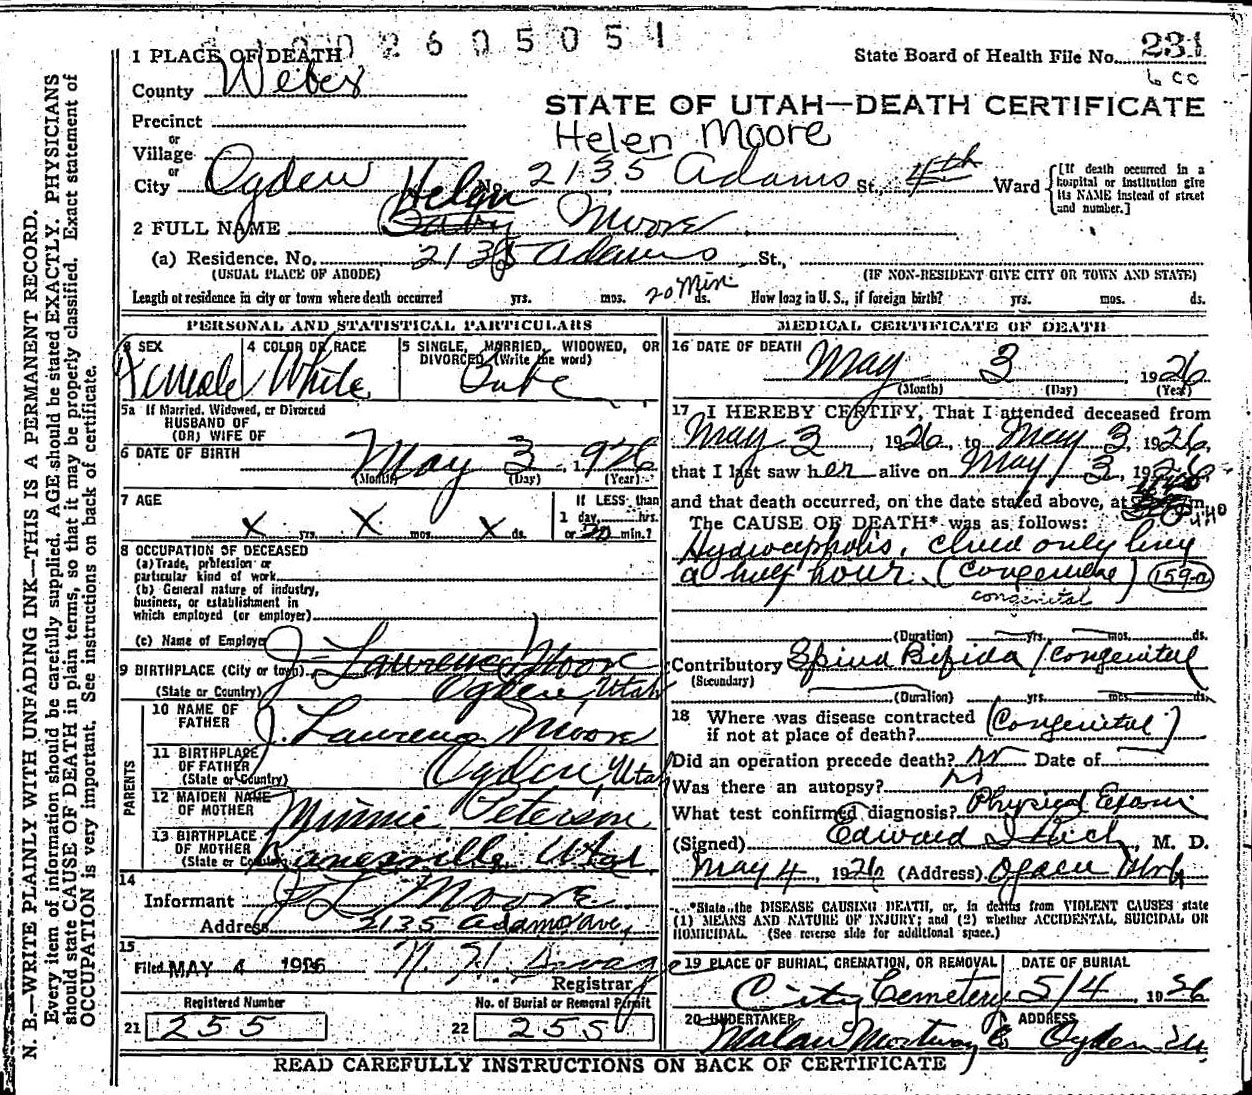 2605051
1 PLACE OF DEATH
State Board of Health File No. 231
600
County Weber
STATE OF UTAH—DEATH CERTIFICATE
Precinct
Helen Moore
or
Village
or
City Ogden No. 2135 Adams St., 4th Ward
[If death occurred in a hospital or institution give its NAME instead of street and number.]
Helen
2 FULL NAME Baby Moore
(a) Residence. No. 2135 Adams St.,
(USUAL PLACE OF ABODE) (IF NON-RESIDENT GIVE CITY OR TOWN AND STATE)
Length of residence in city or town where death occurred yrs. mos. 20 Min ds. How long in U. S., if foreign birth? yrs. mos. ds.
PERSONAL AND STATISTICAL PARTICULARS
3 SEX 4 COLOR OR RACE 5 SINGLE, MARRIED, WIDOWED, OR
DIVORCED (Write the word)
Female White Babe
5a If Married, Widowed, or Divorced
HUSBAND OF
(OR) WIFE OF
6 DATE OF BIRTH May 3, 1926
(Month) (Day) (Year)
7 AGE If LESS than
1 day hrs.
X yrs. X mos. X ds. or 20 min.?
8 OCCUPATION OF DECEASED
(a) Trade, profession or
particular kind of work
(b) General nature of industry,
business, or establishment in
which employed (or employer)
(c) Name of Employer
J. Lawrence Moore
9 BIRTHPLACE (City or town)
(State or Country) Ogden, Utah
PARENTS
10 NAME OF
FATHER J. Lawrence Moore
11 BIRTHPLACE
OF FATHER
(State or Country) Ogden, Utah
12 MAIDEN NAME
OF MOTHER Minnie Peterson
13 BIRTHPLACE
OF MOTHER
(State or Country) Kanesville Utah
14
Informant J L Moore
Address 2135 Adams Ave,
15
Filed MAY 4 1926 N. H. Savage
Registrar
Registered Number No. of Burial or Removal Permit
21 255 22 255
MEDICAL CERTIFICATE OF DEATH
16 DATE OF DEATH
May 3 1926
(Month) (Day) (Year)
17 I HEREBY CERTIFY, That I attended deceased from
May 3, 1926, to May 3, 1926,
that I last saw her alive on May 3, 1926
and that death occurred, on the date stated above, at m.
The CAUSE OF DEATH* was as follows:
Hydrocephalis, child only living
a half hour. (Congenital) 159-a
congenital
(Duration) yrs. mos. ds.
Contributory Spina Bifida / Congenital
(Secondary)
(Duration) yrs. mos. ds.
18 Where was disease contracted
if not at place of death? (Congenital)
Did an operation precede death? no Date of
Was there an autopsy? no
What test confirmed diagnosis? Physical Exam
(Signed) Edward I Rich, M. D.
May 4, 1926 (Address) Ogden Utah
*State the DISEASE CAUSING DEATH, or, in deaths from VIOLENT CAUSES state
(1) MEANS AND NATURE OF INJURY; and (2) whether ACCIDENTAL, SUICIDAL OR
HOMICIDAL. (See reverse side for additional space.)
19 PLACE OF BURIAL, CREMATION, OR REMOVAL DATE OF BURIAL
City Cemetery 5/4, 1926
20 UNDERTAKER ADDRESS
Malan Mortuary Ogden U.
READ CAREFULLY INSTRUCTIONS ON BACK OF CERTIFICATE
N. B.—WRITE PLAINLY WITH UNFADING INK—THIS IS A PERMANENT RECORD.
Every item of information should be carefully supplied. AGE should be stated EXACTLY. PHYSICIANS
should state CAUSE OF DEATH in plain terms, so that it may be properly classified. Exact statement of
OCCUPATION is very important. See instructions on back of certificate.